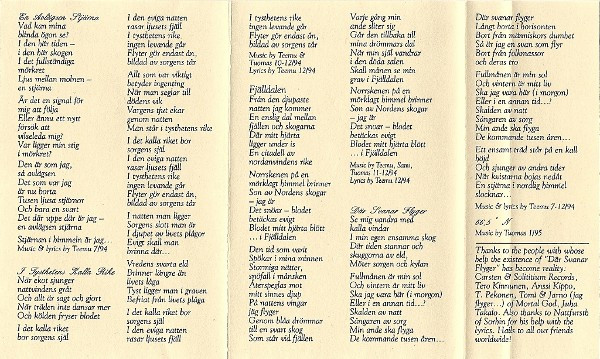 En Avlägsen Stjärna
Vad kan mina
blinda ögon se?
I den här tiden -
i den här skogen
I det fullständiga
mörkret
Ljus mellan molnen -
en stjärna
Är det en signal för
mig att falla
Eller ännu ett nytt
försök att
vilseleda mig?
Var ligger min stig
i mörkret?
Den är som jag,
så avlägsen
Det som var jag
är nu borta
Tusen ljusa stjärnor
Och bara en svart
Det där uppe där är jag -
en avlägsen stjärna
Stjärnan i himmeln är jag...
Music & lyrics by Teemu 7/94
I Tysthetens Kalla Rike
När ekot sjunger
nattvandrins gråt
Och allt är sagt och gjort
När träden inte dansar mer
Och kölden fryser blodet
I det kalla riket
bor sorgens själ
I den eviga natten
rasar ljusets fjäll
I tysthetens rike
ingen levande går
Flyter gör endast ån,
bildad av sorgens tår
Allt som var viktigt
betyder ingenting
När man seglar till
dödens vik
Vargens tjut ekar
genom natten
Man står i tysthetens rike
I det kalla riket bor
sorgens själ
I den eviga natten
rasar ljusets fjäll
I tysthetens rike
ingen levande går
Flyter gör endast ån,
bildad av sorgens tår
I natten man ligger
Sorgens slott man är
I djupet av livets plågor
Evigt skall man
brinna där...
Vredens svarta eld
Brinner längre än
livets låga
Tyst ligger man i graven
Befriat från livets plåga
I det kalla riket bor
sorgens själ
I den eviga natten
rasar ljusets fjäll
I tysthetens rike
ingen levande går
Flyter gör endast ån,
bildad av sorgens tår
Music by Teemu &
Tuomas 10-12/94
Lyrics by Teemu 12/94
Fjälldalen
Från den djupaste
natten jag kommer
En enslig dal mellan
fjällen och skogarna
Där mitt hjärta
ligger under is
En citadell av
nordanvindens rike
Norrskenen på en
mörklagt himmel brinner
Son av Nordens skogar
- jag är
Det snöar - blodet
betäckas evigt
Blodet mitt hjärta blött
... i Fjälldalen
Den tid som varit
Spökar i mina minnen
Stormiga nätter,
gnöfall i månsken
Återspeglas mot
mitt sinnes djup
På nattens vingar
jag flyger
Genom blåa drömmar
till en svart skog
Som står vid fjällen
Varje gång min
ande sliter sig
Går den tillbaka till
mina drömmars dal
När min själ vandrar
i den döda salen
Skall månen se min
grav i Fjälldalen
Norrskenen på en
mörklagt himmel brinner
Son av Nordens skogar
- jag är
Det snöar - blodet
betäckas evigt
Blodet mitt hjärta blött
... i Fjälldalen
Music by Teemu, Samu,
Tuomas 11-12/94
Lyrics by Teemu 12/94
Där Svanar Flyger
Se mig vandra med
kalla vindar
I min egen ensamma skog
Där tiden stannar och
skuggorna av eld
Möter sorgen och kylan
Fullmånen är min sol
Och vintern är mitt liv
Ska jag vara här (i morgon)
Eller i en annan tid...?
Skalden av natt
Sångaren av sorg
Min ande ska flyga
De kommande tusen åren...
Där svanar flyger
Långt borta i horisonten
Bort från människors dumhet
Så är jag en svan som flyr
Bort från folkmassor
och deras tro
Fullmånen är min sol
Och vintern är mitt liv
Ska jag vara här (i morgon)
Eller i en annan tid...?
Skalden av natt
Sångaren av sorg
Min ande ska flyga
De kommande tusen åren...
Ett ensamt träd står på en kall
höjd
Och sjunger av andra tider
När kvistarna böjas nedåt
En stjärna i nordlig himmel
slocknar...
Music & Lyrics by Teemu 7-12/94
66,5° N
Music by Tuomas 1/95
Thanks to the people with whose
help the existence of "Där Svanar
Flyger" has become reality:
Carsten & Solistitium Records,
Tero Kinnunen, Anssi Kippo,
T. Pekonen, Tomi & Jarno (jag
flyger...) of Mortal God, Juha
Takalo. Also thanks to Nattfursth
of Sorhin for his help with the
lyrics. Hails to all our friends
worldwide!